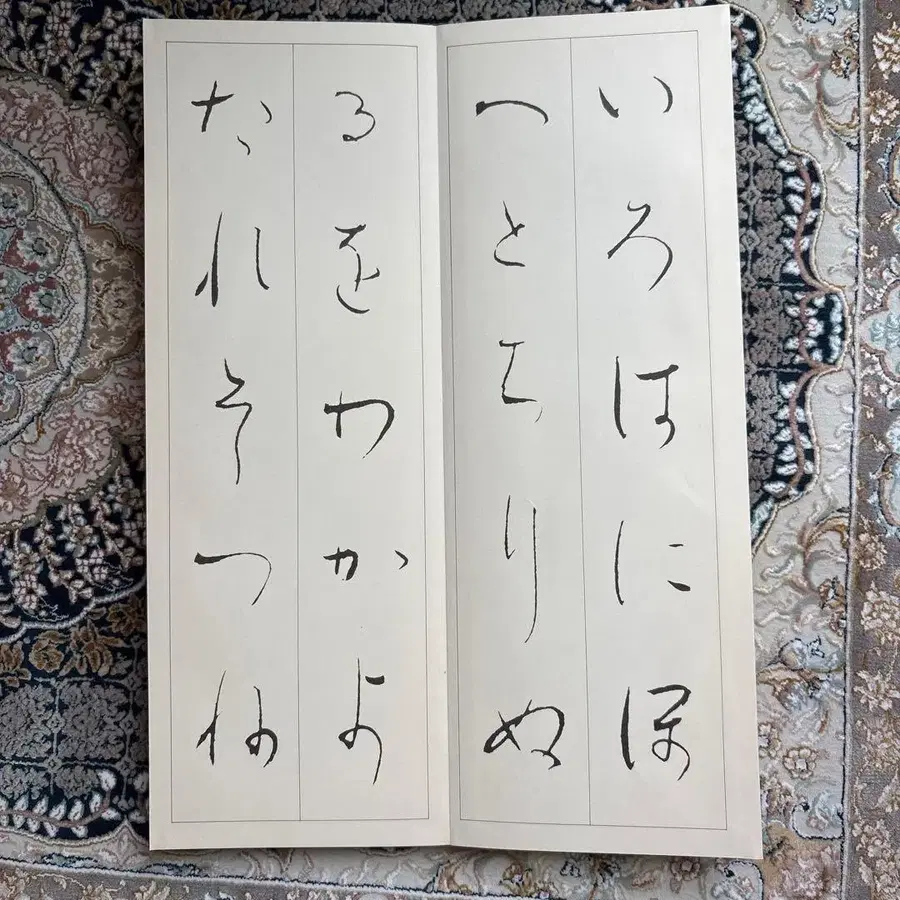 いろはにほ
へとちりぬ
るをわかよ
たれそつね